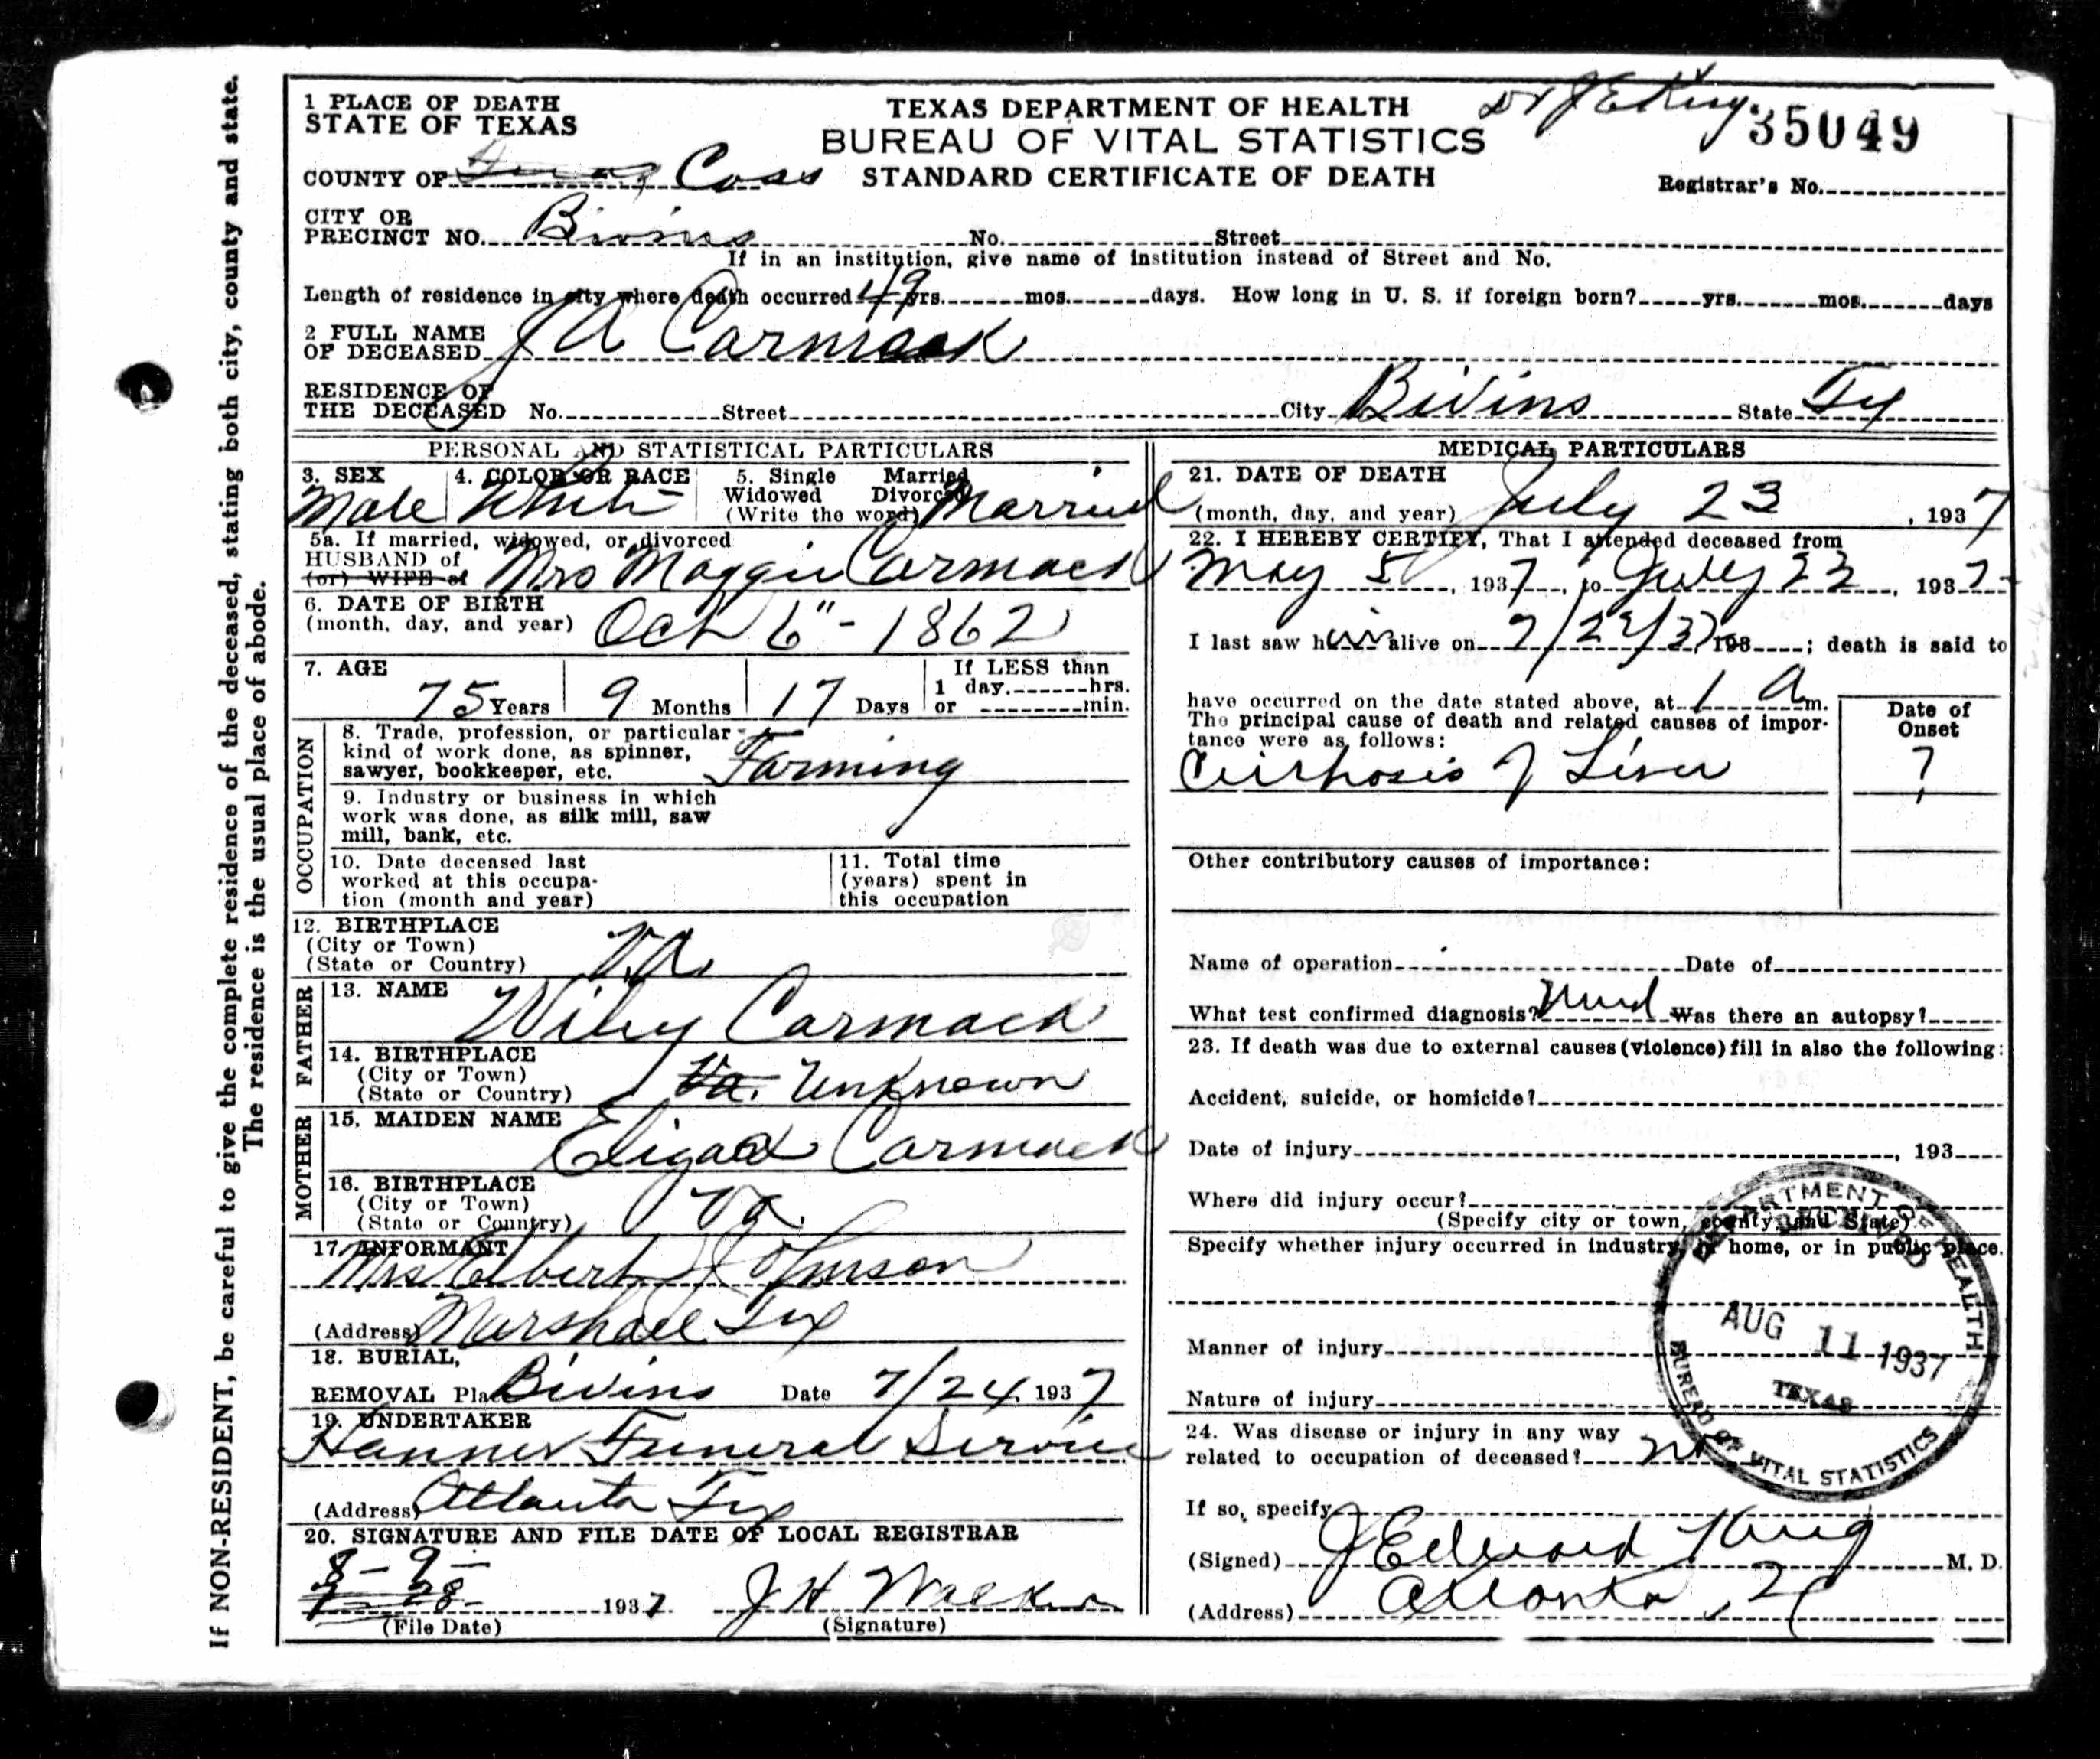 If NON-RESIDENT, be careful to give the complete residence of the deceased, stating both city, county and state.
The residence is the usual place of abode.
1 PLACE OF DEATH
STATE OF TEXAS
TEXAS DEPARTMENT OF HEALTH
BUREAU OF VITAL STATISTICS
STANDARD CERTIFICATE OF DEATH
Dr J E King
35049
COUNTY OF Texas Cass
Registrar's No.
CITY OR
PRECINCT NO. Bivins No. Street
If in an institution, give name of institution instead of Street and No.
Length of residence in city where death occurred 49 yrs. mos. days. How long in U. S. if foreign born? yrs. mos. days
2 FULL NAME
OF DECEASED J A Carmack
RESIDENCE OF
THE DECEASED No. Street City Bivins State Tex
PERSONAL AND STATISTICAL PARTICULARS
3. SEX Male
4. COLOR OR RACE White
5. Single Married
Widowed Divorced
(Write the word) Married
5a. If married, widowed, or divorced
HUSBAND of
(or) WIFE of Mrs Maggie Carmack
6. DATE OF BIRTH
(month, day, and year) Oct 6" - 1862
7. AGE
75 Years 9 Months 17 Days
If LESS than
1 day, hrs.
or min.
OCCUPATION
8. Trade, profession, or particular
kind of work done, as spinner,
sawyer, bookkeeper, etc. Farming
9. Industry or business in which
work was done, as silk mill, saw
mill, bank, etc.
10. Date deceased last
worked at this occupa-
tion (month and year)
11. Total time
(years) spent in
this occupation
12. BIRTHPLACE
(City or Town)
(State or Country) Va.
FATHER
13. NAME Wiley Carmack
14. BIRTHPLACE
(City or Town)
(State or Country) Va. Unknown
MOTHER
15. MAIDEN NAME Eliza Carmack
16. BIRTHPLACE
(City or Town)
(State or Country) Va.
17. INFORMANT
Mrs Elbert Johnson
(Address) Marshall Tex
18. BURIAL,
REMOVAL Place Bivins Date 7/24 1937
19. UNDERTAKER
Hanner Funeral Service
(Address) Atlanta Tex
20. SIGNATURE AND FILE DATE OF LOCAL REGISTRAR
8-9-
7-28- 1937 J H Walker
(File Date) (Signature)
MEDICAL PARTICULARS
21. DATE OF DEATH
(month, day, and year) July 23, 1937
22. I HEREBY CERTIFY, That I attended deceased from
May 5, 1937, to July 23, 1937
I last saw him alive on 7/22/37 193; death is said to
have occurred on the date stated above, at 1 A m.
The principal cause of death and related causes of impor-
tance were as follows:
Date of
Onset
Cirrhosis of Liver ?
Other contributory causes of importance:
Name of operation Date of
What test confirmed diagnosis? Was there an autopsy?
23. If death was due to external causes (violence) fill in also the following:
Accident, suicide, or homicide?
Date of injury, 193
Where did injury occur?
(Specify city or town, county, and State)
Specify whether injury occurred in industry, in home, or in public place.
Manner of injury
Nature of injury
24. Was disease or injury in any way
related to occupation of deceased? no
If so, specify
(Signed) J Edward King M. D.
(Address) Atlanta,
DEPARTMENT OF HEALTH
RECEIVED
AUG 11 1937
TEXAS
BUREAU OF VITAL STATISTICS